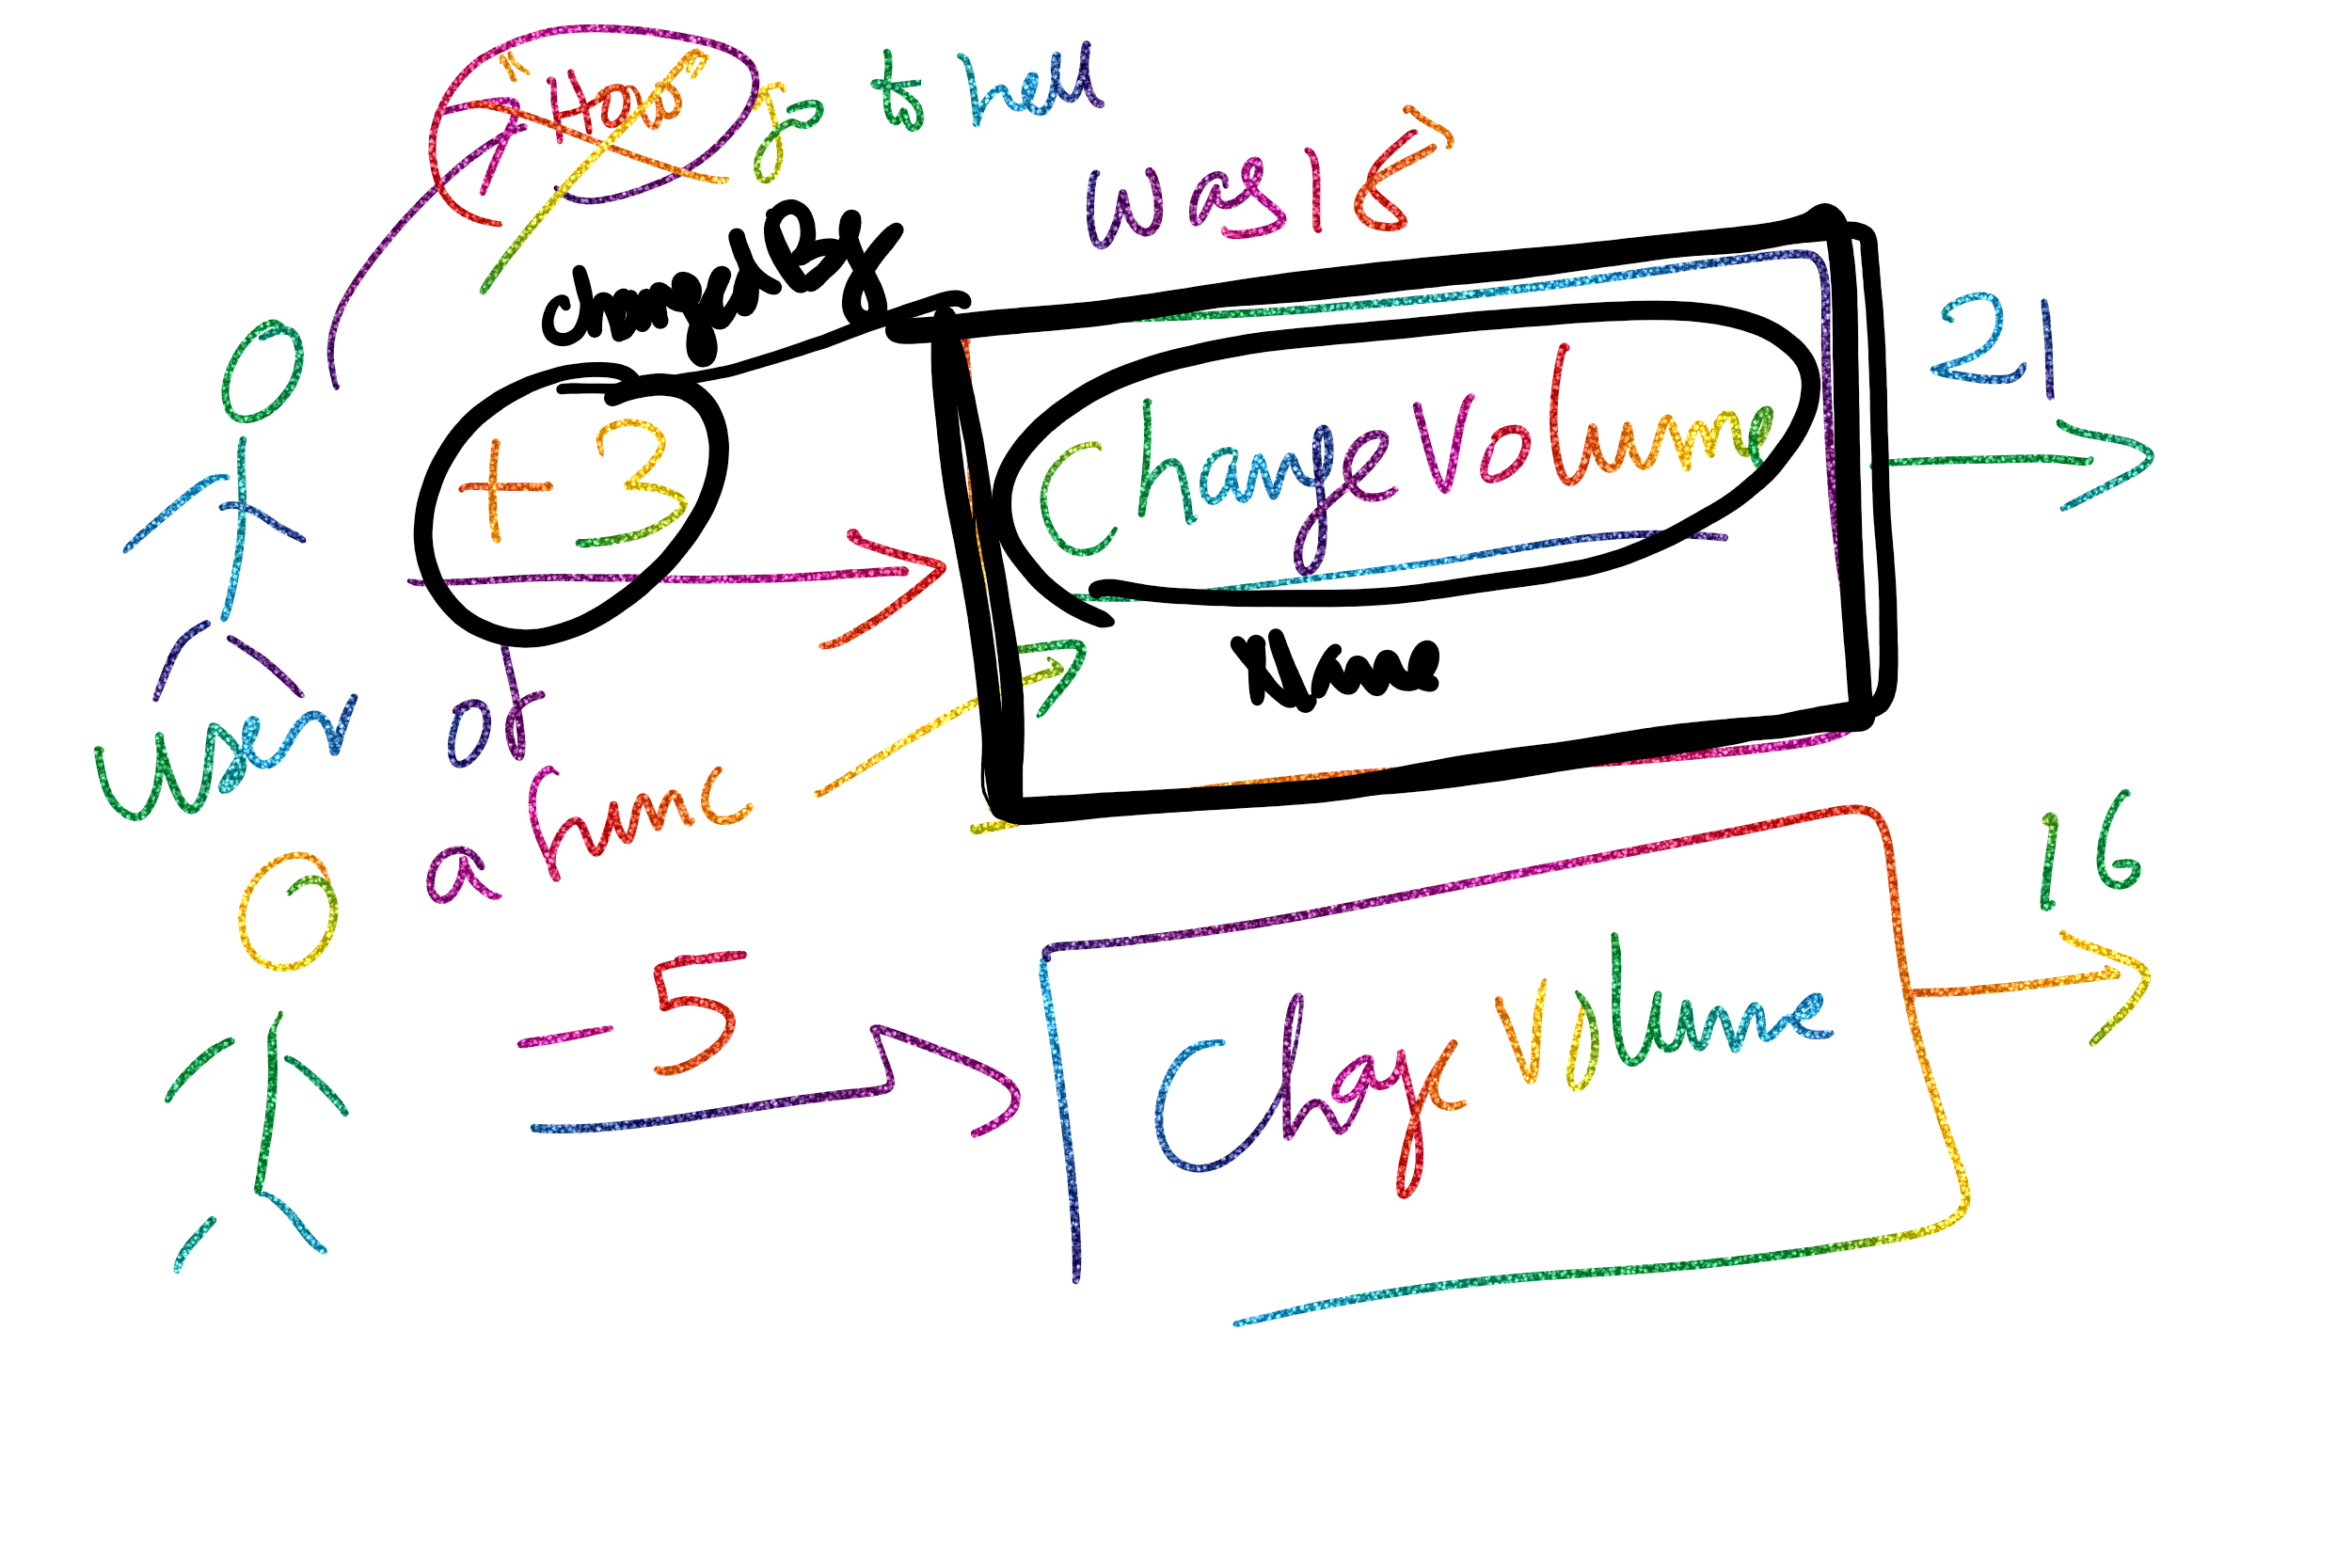 "How" go to hell
was 18
changedBy
+3
ChangeVolume
21
Name
user of
a func
-5
Chage Volume
16